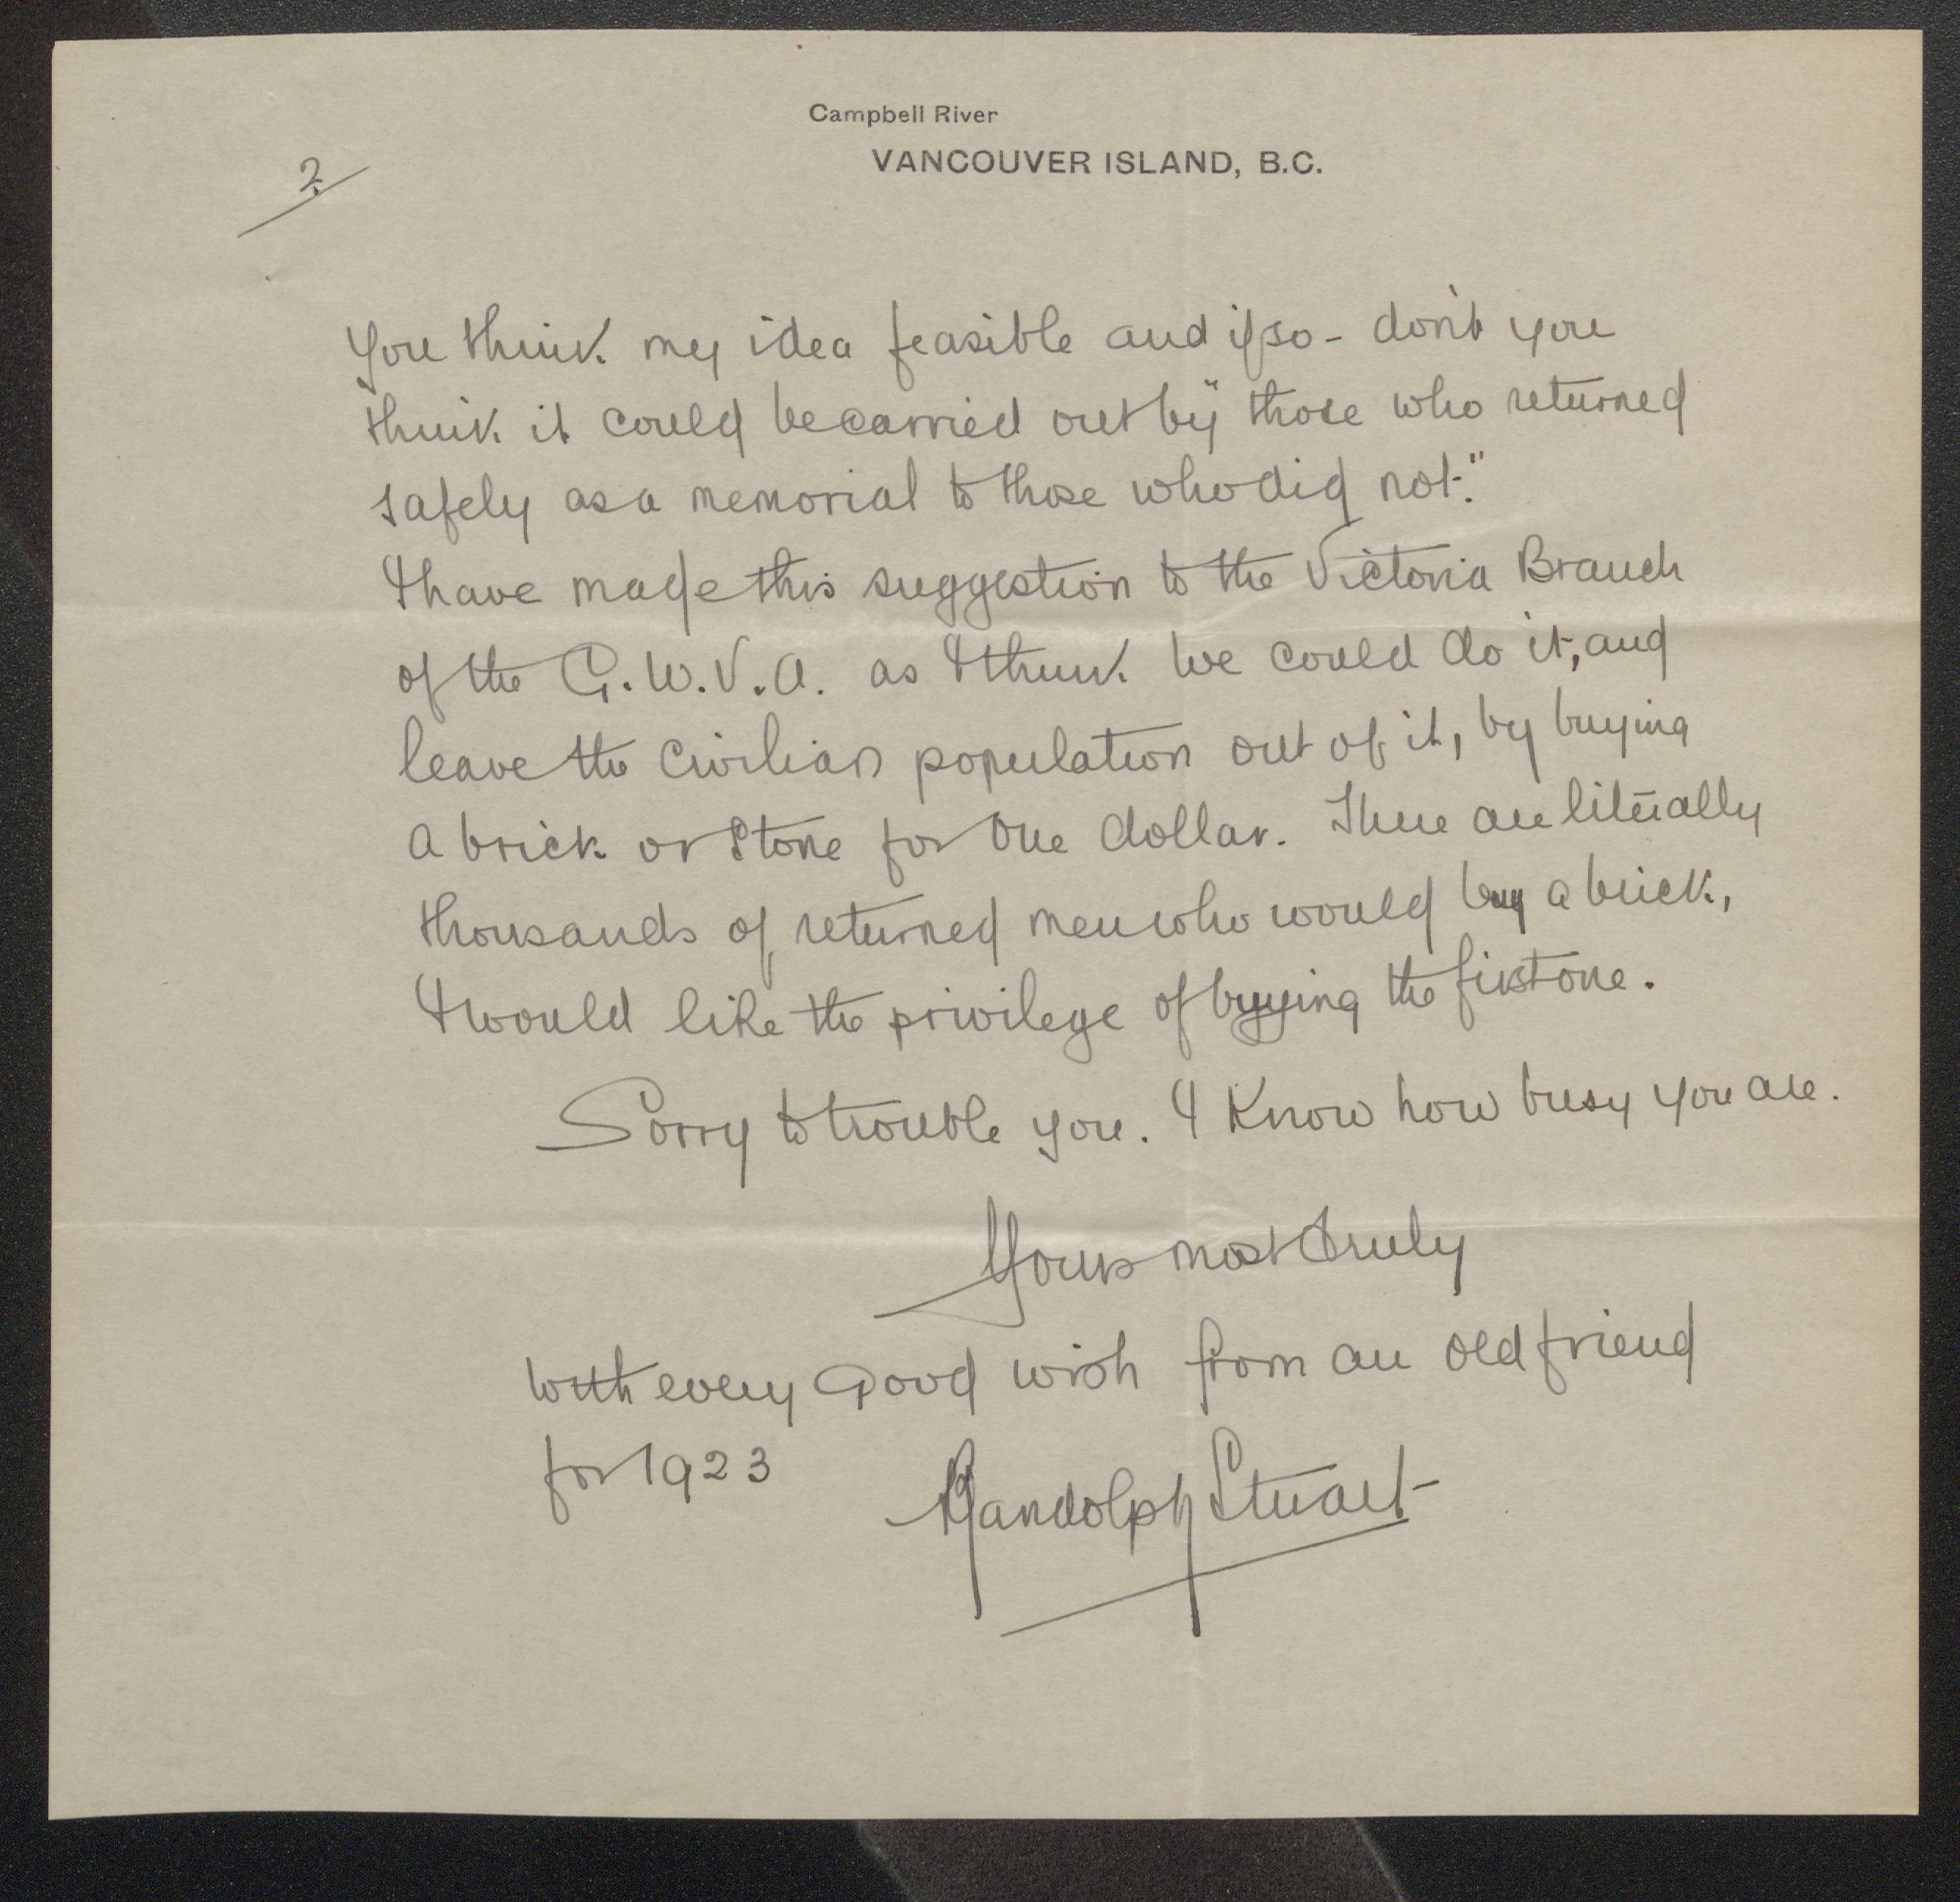 Campbell River
VANCOUVER ISLAND, B.C.
2
You think my idea feasible and if so - don't you
think it could be carried out by "those who returned
safely as a memorial to those who did not."
I have made this suggestion to the Victoria Branch
of the G.W.V.A. as I think we could do it, and
leave the civilian population out of it, by buying
a brick or stone for one dollar. There are literally
thousands of returned men who would buy a brick,
I would like the privilege of buying the first one.
Sorry to trouble you. I know how busy you are.
Yours most truly
with every good wish from an old friend
for 1923
Randolph Stuart